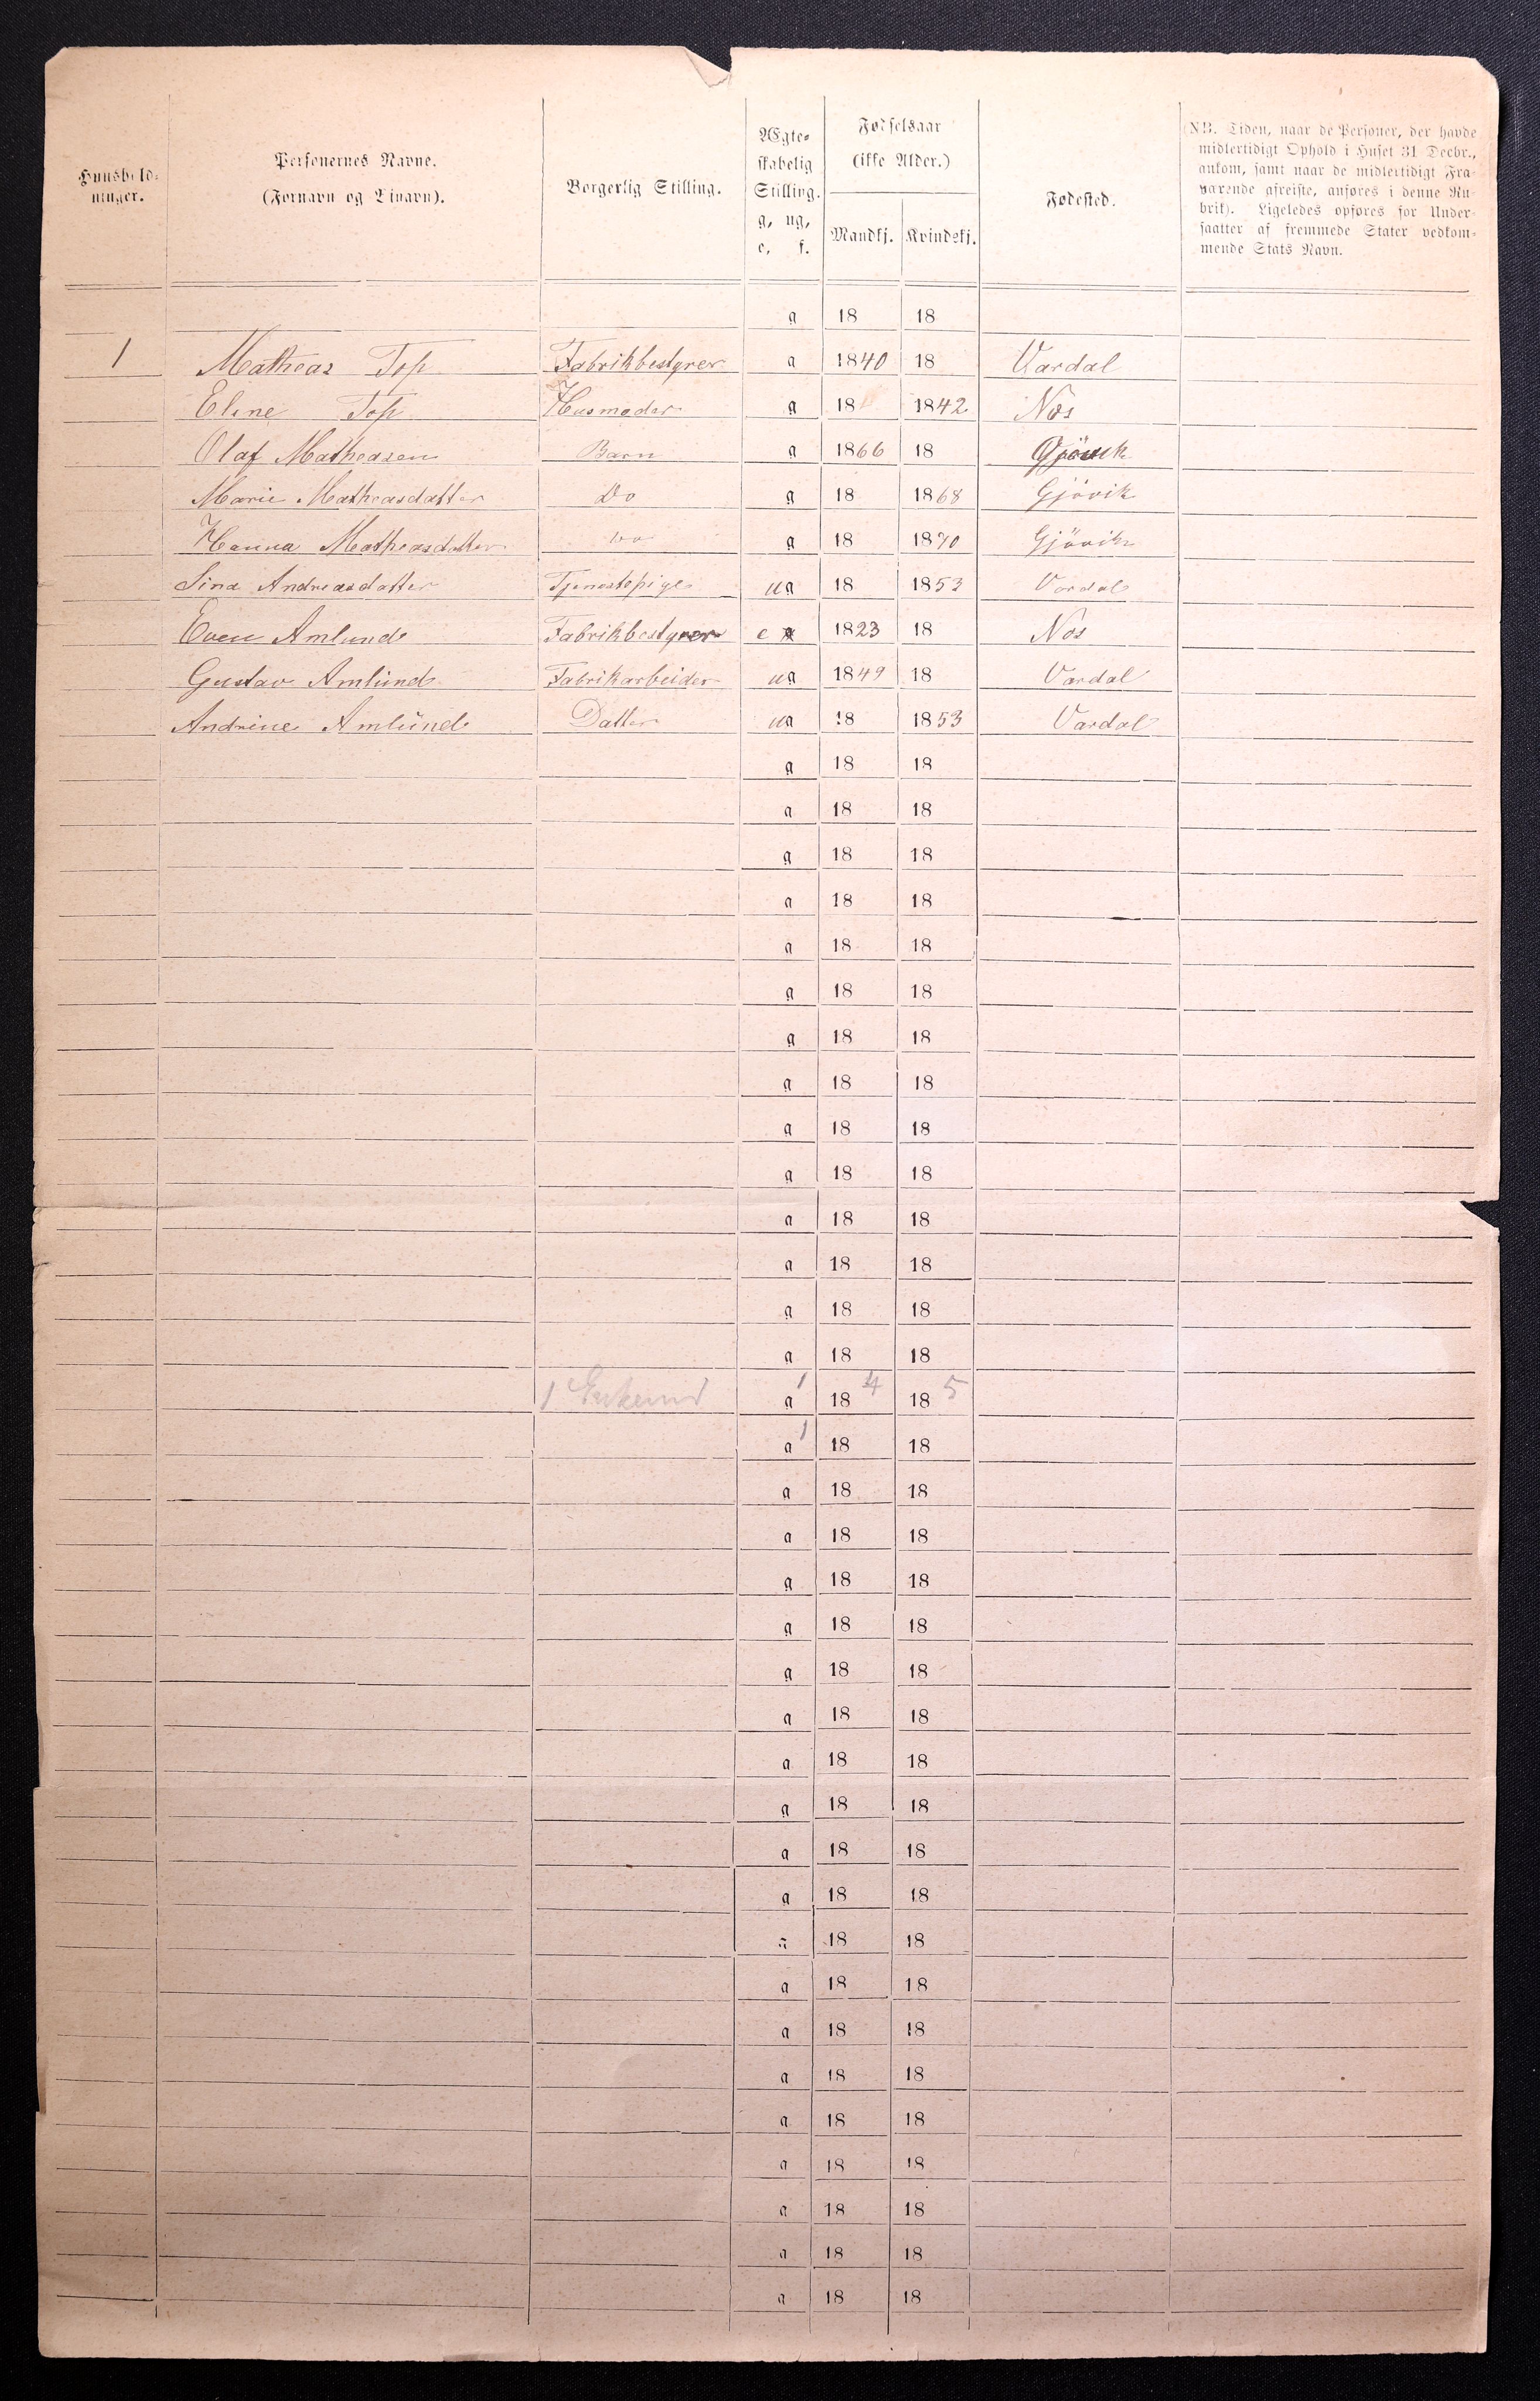 Huusholdninger.
Personernes Navne.
(Fornavn og Tilnavn).
Borgerlig Stilling.
Ægteskabelig Stilling.
g, ug,
e, f.
Fødselsaar
(ikke Alder.)
Mandkj. Kvindekj.
Fødested.
(NB. Tiden, naar de Personer, der havde
midlertidigt Ophold i Huset 31 Decbr.,
ankom, samt naar de midlertidigt Fra-
værende afreiste, anføres i denne Ru-
brik). Ligeledes opføres for Under-
saatter af fremmede Stater vedkom-
mende Stats Navn.
g 18 18
1 Matheas Top Fabrikbestyrer g 1840 18 Vardal
Eline Top Husmoder g 18 1842 Næs
Olaf Matheasen Barn g 1866 18 Gjövik
Marie Matheasdatter Do g 18 1868 Gjövik
Hanna Matheasdatter Do g 18 1870 Gjövik
Lina Andreasdatter Tjenestepige ug 18 1853 Vardal
Even Amlund Fabrikbestyrer e g 1823 18 Næs
Gustav Amlund Fabrikarbeider ug 1849 18 Vardal
Andrine Amlund Datter ug 18 1853 Vardal
g 18 18
g 18 18
g 18 18
g 18 18
g 18 18
g 18 18
g 18 18
g 18 18
g 18 18
g 18 18
g 18 18
g 18 18
g 18 18
g 18 18
1 Enkemd g 1 18 4 18 5
g 1 18 18
g 18 18
g 18 18
g 18 18
g 18 18
g 18 18
g 18 18
g 18 18
g 18 18
g 18 18
g 18 18
g 18 18
g 18 18
g 18 18
g 18 18
g 18 18
g 18 18
g 18 18
g 18 18
g 18 18